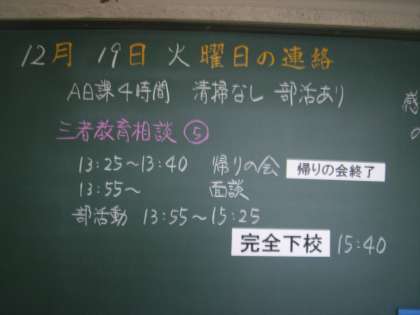 12月 19日 火曜日の連絡
AB課4時間 清掃なし 部活あり
三者教育相談 ⑤
13:25〜13:40 帰りの会 帰りの会終了
13:55〜 面談
部活動 13:55〜15:25
完全下校 15:40
感
の